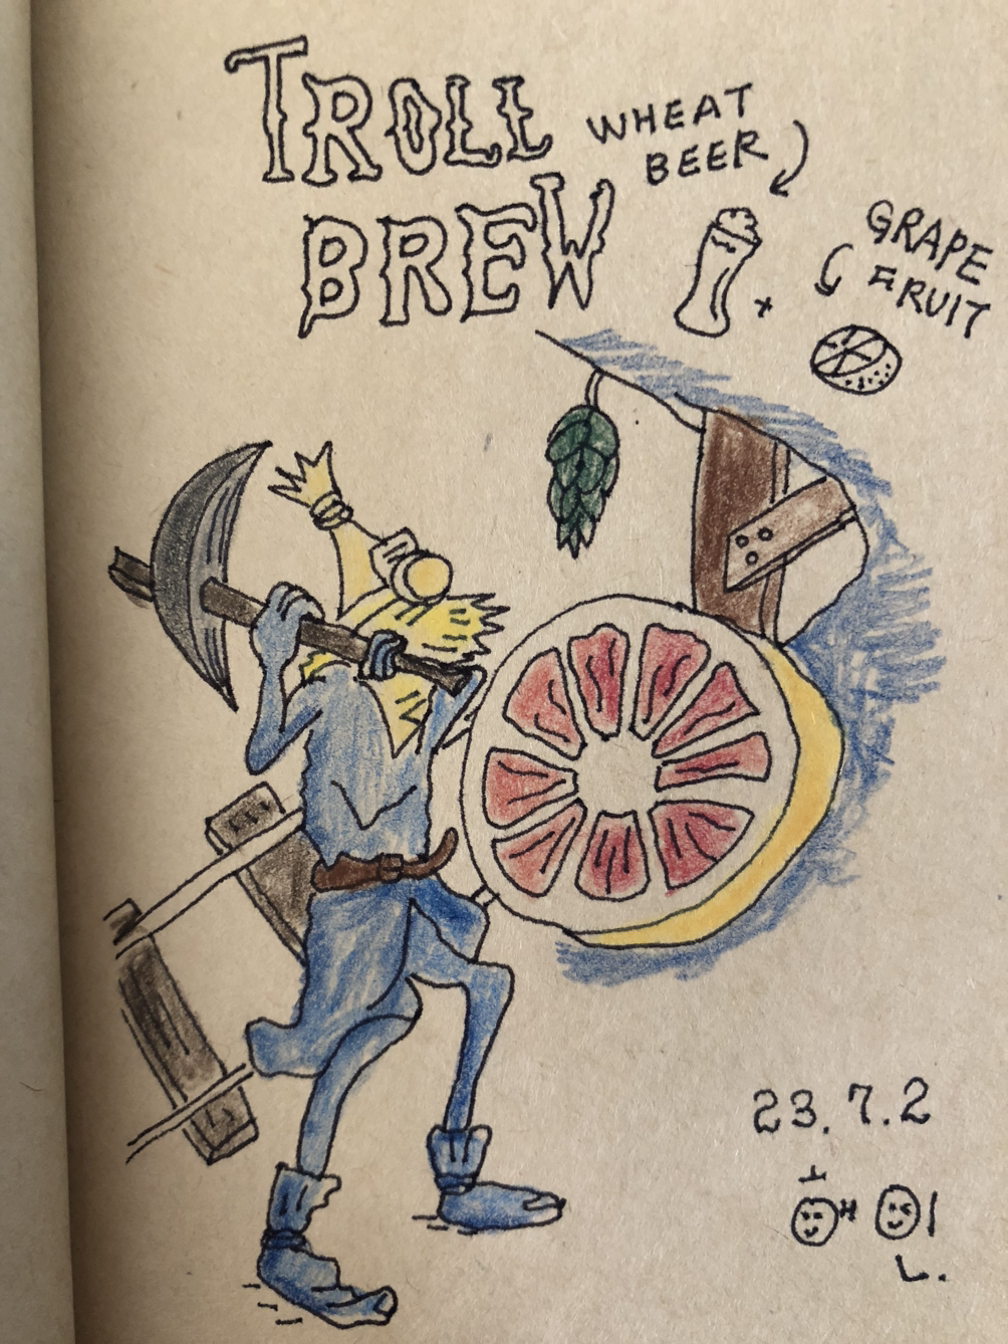 TROLL
BREW
WHEAT
BEER
+
GRAPE
FRUIT
23.7.2
해인.